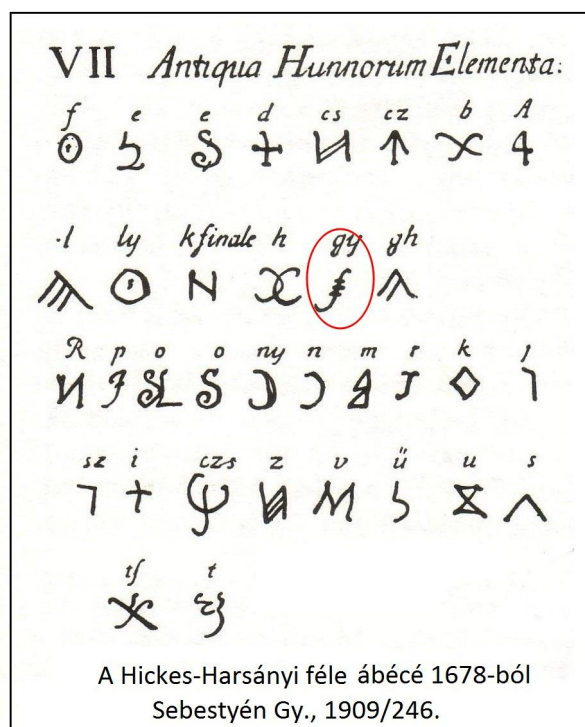 VII Antiqua Hunnorum Elementa:
f e e d cs cz b A
l ly k finale h gy gh
R p o o ny n m r k j
sz i czs z v ü u s
tſ t
A Hickes-Harsányi féle ábécé 1678-ból
Sebestyén Gy., 1909/246.